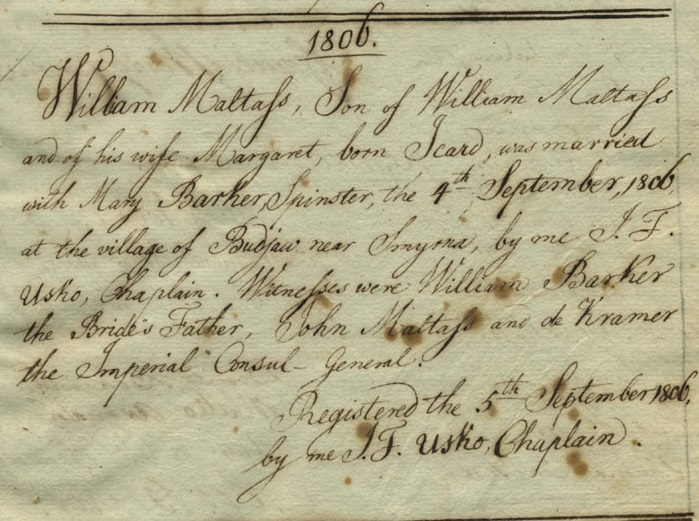 1806.
William Maltass, Son of William Maltass
and of his wife Margaret, born Icard, was married
with Mary Barker, Spinster, the 4th September, 1806
at the village of Budjaw near Smyrna, by me I. F.
Usko, Chaplain. Witnesses were William Barker
the Bride's Father, John Maltass and de Kramer
the Imperial Consul-General.
Registered the 5th September 1806.
by me I. F. Usko, Chaplain.